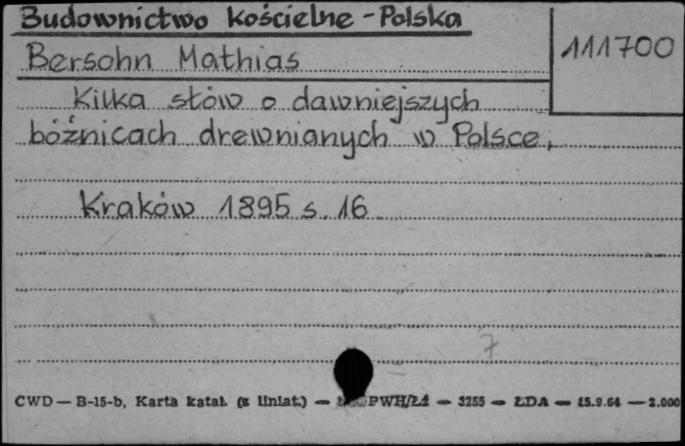 Budownictwo kościelne - Polska
111700
Bersohn Mathias
Kilka słów o dawniejszych
bóźnicach drewnianych w Polsce,
Kraków 1895 s. 16
7
CWD — B-15-b, Karta katal. (z liniat.) — PWH/Łź — 3255 — ŁDA — 15.9.64 — 2.000